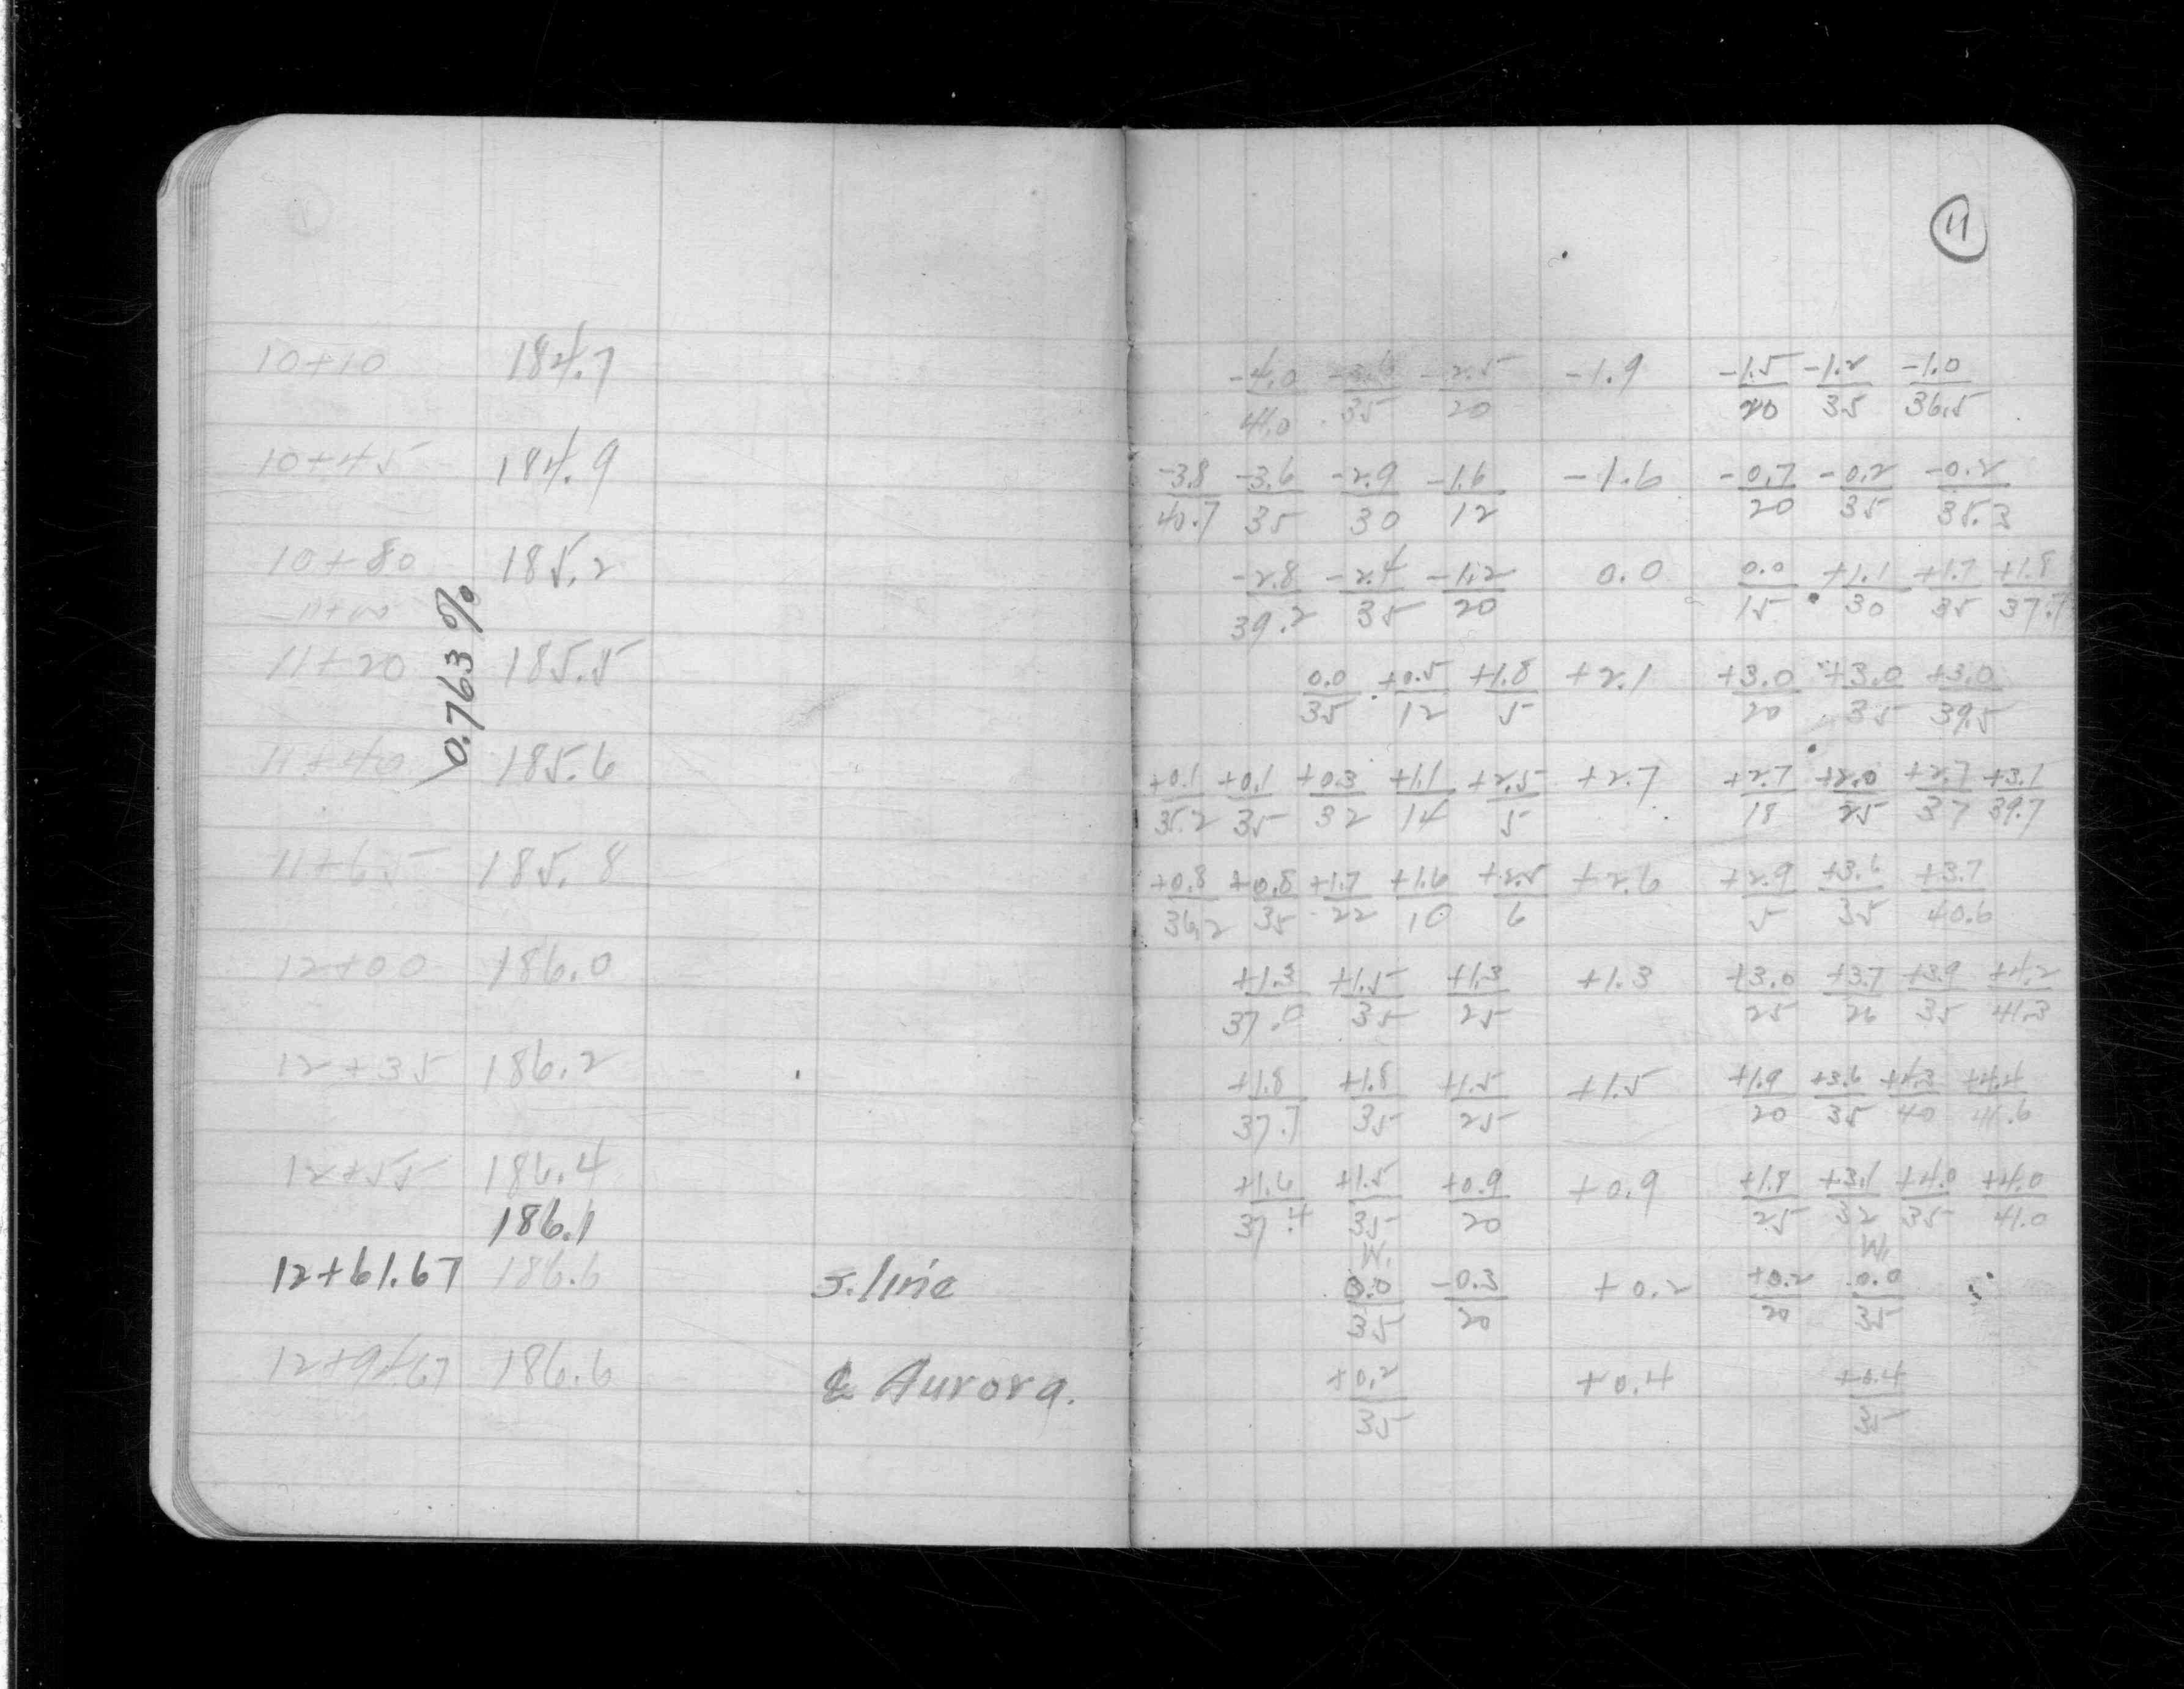 11
10+10 184.7 -4.0 -2.5 -1.9 -1.5 -1.2 -1.0
41.0 35 20 20 35 36.5
10+45 184.9 -3.8 -3.6 -2.9 -1.6 -1.6 -0.7 -0.2 -0.2
40.7 35 30 12 20 35 35.3
10+80 185.2 -2.8 -2.4 -1.2 0.0 0.0 +1.1 +1.7 +1.8
11+00 39.2 35 20 15 30 35 37.7
0.763%
11+20 185.5 0.0 +0.5 +1.8 +2.1 +3.0 +3.0 +3.0
35 12 5 20 35 39.5
11+40 185.6 +0.1 +0.1 +0.3 +1.1 +2.5 +2.7 +2.7 +2.0 +2.7 +3.1
35.2 35 32 14 5 18 25 37 39.7
11+65 185.8 +0.8 +0.8 +1.7 +1.6 +2.5 +2.6 +2.9 +3.6 +3.7
36.2 35 22 10 6 5 35 40.6
12+00 186.0 +1.3 +1.5 +1.3 +1.3 +3.0 +3.7 +3.9 +4.2
37.0 35 25 25 26 35 41.3
12+35 186.2 +1.8 +1.8 +1.5 +1.5 +1.9 +3.6 +4.3 +4.4
37.7 35 25 20 35 40 41.6
12+55 186.4 +1.6 +1.5 +0.9 +0.9 +1.8 +3.1 +4.0 +4.0
186.1 37.4 35 20 25 32 35 41.0
W. W.
12+61.67 186.6 S. line 0.0 -0.3 +0.2 +0.2 0.0
35 20 20 35
12+94.67 186.6 ℄ Aurora. +0.2 +0.4 +0.4
35 35